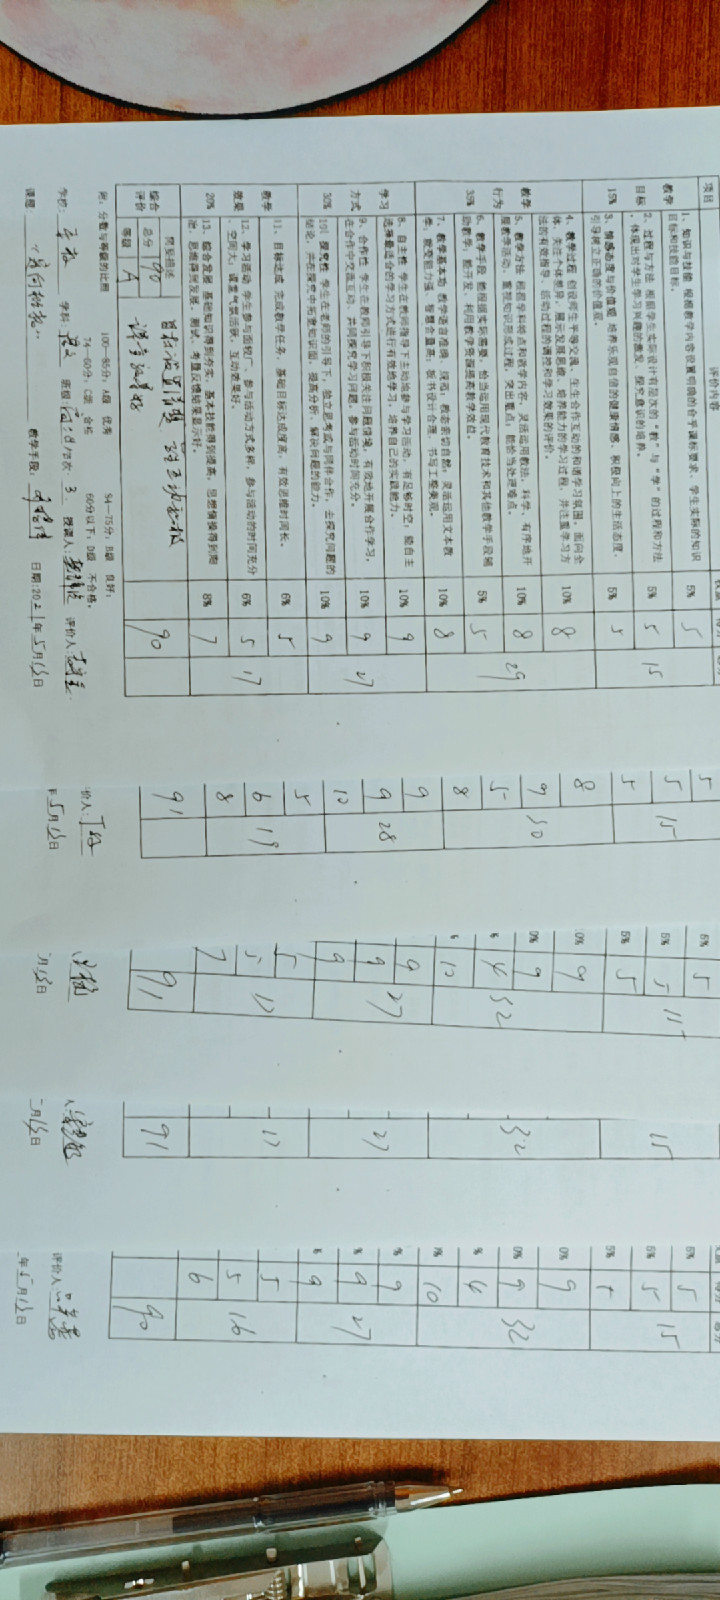 项目
评价内容
教学目标 15%
1、知识与技能 根据教学内容设置明确的合乎课标要求、学生实际的知识目标和技能目标。
5%
5
2、过程与方法 根据学生实际设计有层次的“教”与“学”的过程和方法
，体现出对学生学习兴趣的激发、探究意识的培养。
5%
5
15
3、情感态度与价值观 培养乐观自信的健康情感，积极向上的生活态度，
引导树立正确的价值观。
5%
5
教学行为 35%
4、教学过程 创设师生平等交流、生生合作互动的和谐学习氛围，面向全
体，关注个体差异，展示发展思维、培养能力的学习过程，并注重学习方
法的有效指导、活动过程的调控和学习效果的评价。
10%
8
5、教学方法 根据学科特点和教学内容，灵活运用教法，科学、有序地开
展教学活动，重视知识形成过程，突出重点，能恰当处理难点。
10%
8
29
6、教学手段 能根据实际需要，恰当运用现代教育技术和其他教学手段辅
助教学，能开发、利用教学资源提高教学效益。
5%
5
7、教学基本功 教学语言准确、规范；教态亲切自然；灵活运用文本教
学，应变能力强、智慧含量高；板书设计合理，书写工整美观。
10%
8
学习方式 30%
8、自主性 学生在教师指导下主动地参与学习活动，有足够时空；能自主
选择最适合的学习方式进行有效地学习，培养自己的实践能力。
10%
9
9、合作性 学生在教师引导下积极关注问题情境，有效地开展合作学习，
在合作中交流互动、共同探究学习问题，参与活动时间充分。
10%
9
27
10、探究性 学生在老师的引导下，独立思考或与同伴合作，去探究问题的
结论，并在探究中拓宽知识面，提高分析、解决问题的能力。
10%
9
教学效果 20%
11、目标达成 完成教学任务，基础目标达成度高，有效思维时间长。
6%
5
12、学习活动 学生参与面较广，参与活动方式多样，参与活动的时间充分
、空间大；课堂气氛活跃，互动效果好。
6%
5
17
13、综合发展 基础知识得到夯实，基本技能得到提高，思想情操得到陶
冶，思维得到发展，测试、考量反馈结果显示好。
8%
7
综合评价
总分
90
简要综述
等级
A
课堂效果好
90
附：分数与等级的比照 100—85分，A级 优秀 84—75分，B级 良好；
74—60分，C级 合格 60分以下，D级 不合格。
学校： 学科：语文 班级： 节次 3 授课人： 评价人：
课题： 教学手段： 日期：2021年5月13日
5
5
5
15
8
9
5
8
30
9
9
10
28
5
6
8
19
91
价人：
年5月13日
5%
5
5%
5
5%
5
15
0%
9
0%
9
4
10
32
9
9
9
27
5
5
7
17
91
月13日
15
32
27
17
91
人
月13日
5%
5
5%
5
5%
5
15
0%
9
0%
9
%
4
1%
10
32
%
9
%
9
%
9
27
5
5
6
16
90
评价人
年5月13日